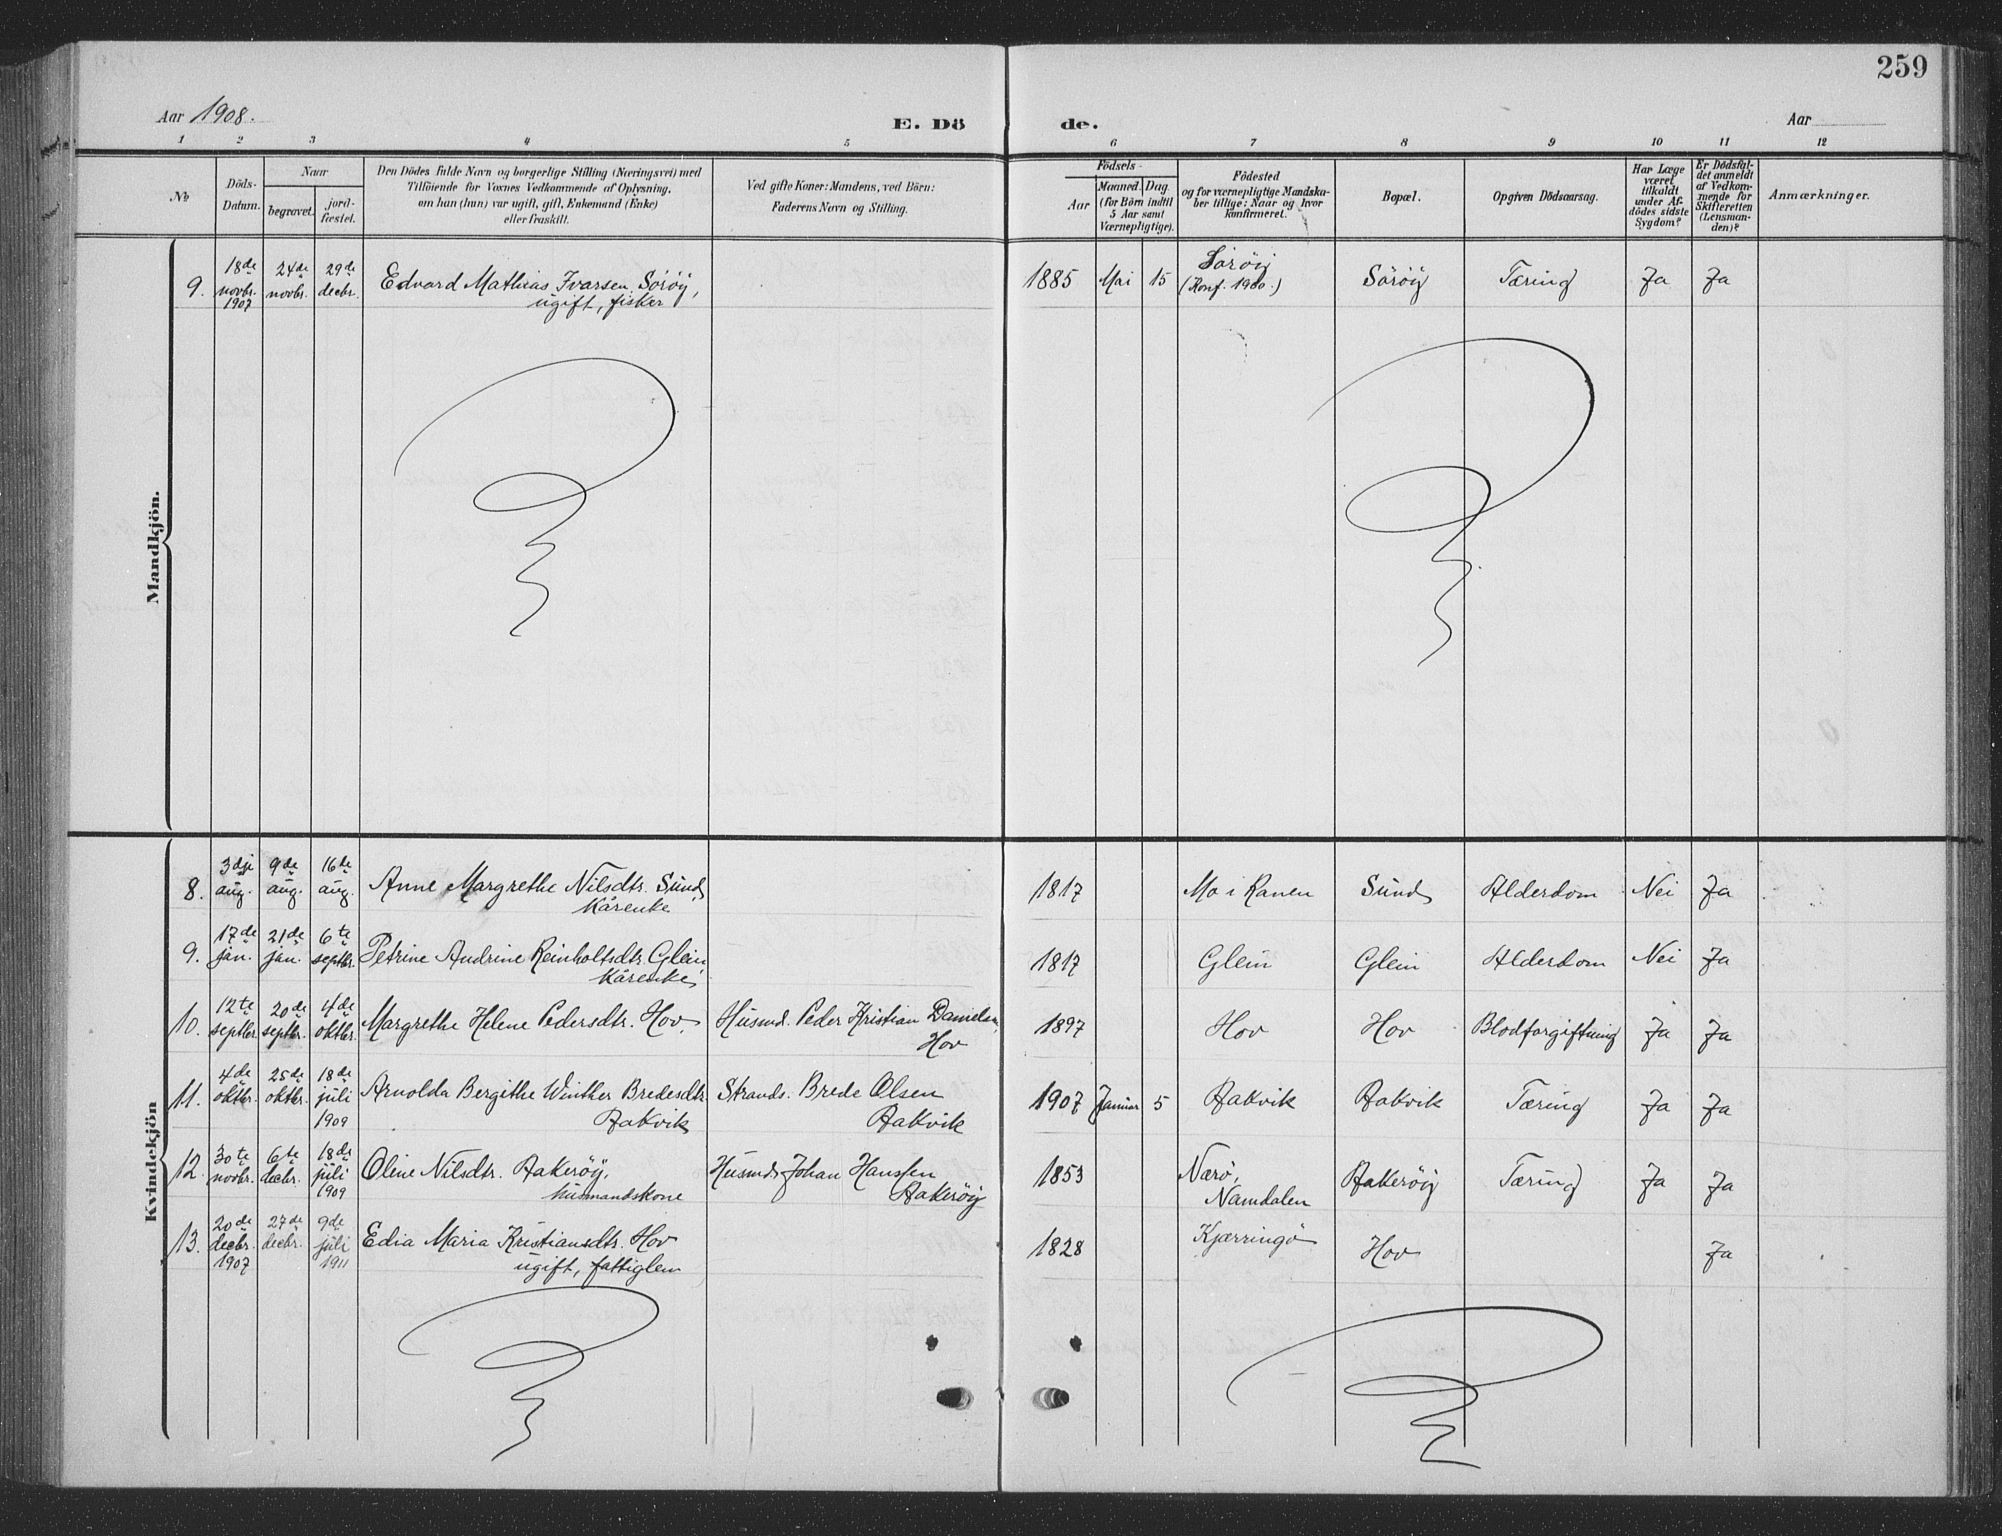 259
Aar 1908.
E. Dö de.
Aar
1 2 3 4 5 6 7 8 9 10 11 12
No
Döds-
Datum.
Naar
begravet.
jord-
fæstet.
Den Dödes fulde Navn og borgerlige Stilling (Næringsvei) med
Tilföiende for Voxnes Vedkommende af Oplysning,
om han (hun) var ugift, gift, Enkemand (Enke)
eller fraskilt.
Ved gifte Koner: Mandens, ved Börn:
Faderens Navn og Stilling.
Födsels-
Aar
Maaned. Dag.
(for Börn indtil
5 Aar samt
Værnepligtige).
Födested
og for værnepligtige Mandska-
ber tillige: Naar og hvor
konfirmeret.
Bopæl.
Opgiven Dödsaarsag.
Har Læge
været
tilkaldt
under Af-
dödes sidste
Sygdom?
Er Dödsfal-
det anmeldt
af Vedkom-
mende for
Skifteretten
(Lensman-
den)?
Anmærkninger.
Mandkjön.
9. 18de novbr. 1907 24de novbr. 29de decbr. Edvard Mathias Ivarsen, Söröy, 1885 Mai 15 Söröy Söröy Tæring Ja Ja
ugift, fisker (Konf. 1900.)
Kvindekjön
8. 3dje aug. 9de aug. 16de aug. Anne Margrethe Nilsdtr. Sund, 1817 Mo i Ranen Sund Alderdom Nei Ja
kårenke
9. 17de jan. 21de jan. 6te septbr. Petrine Andrine Reinholtsdtr. Glein, 1817 Glein Glein Alderdom Nei Ja
kårenke
10. 12te septbr. 20de septbr. 4de oktbr. Margrethe Helene Pedersdtr. Hov, Husmd. Peder Kristian Danielsen, 1897 Hov Hov Blodforgiftning Ja Ja
Hov
11. 4de oktbr. 25de oktbr. 18de juli 1909 Arnolda Bergithe Winther Bredesdtr. Strands. Brede Olsen 1907 Januar 5 Aakvik Aakvik Tæring Ja Ja
Aakvik Aakvik
12. 30te novbr. 6te decbr. 18de juli 1909 Oline Nilsdtr. Aakeröy, Husmd. Johan Hanssen 1853 Nærö, Aakeröy Tæring Ja Ja
husmandskone Aakeröy Namdalen
13. 20de decbr. 1907 27de decbr. 9de juli 1911 Edia Maria Kristiansdtr. Hov 1828 Kjærringö Hov Ja
ugift, fattiglem